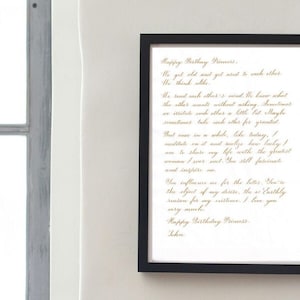 Happy Birthday Princess,
We get old and get used to each other.
We think alike.
We read each other's mind. We know what
the other wants without asking. Sometimes
we irritate each other a little bit. Maybe
sometimes take each other for granted.
But once in a while, like today, I
meditate on it and realize how lucky I
am to share my life with the greatest
woman I ever met. You still fascinate
and inspire me.
You influence me for the better. You're
the object of my desire, the #1 Earthly
reason for my existence. I love you
very much.
Happy Birthday Princess.
John